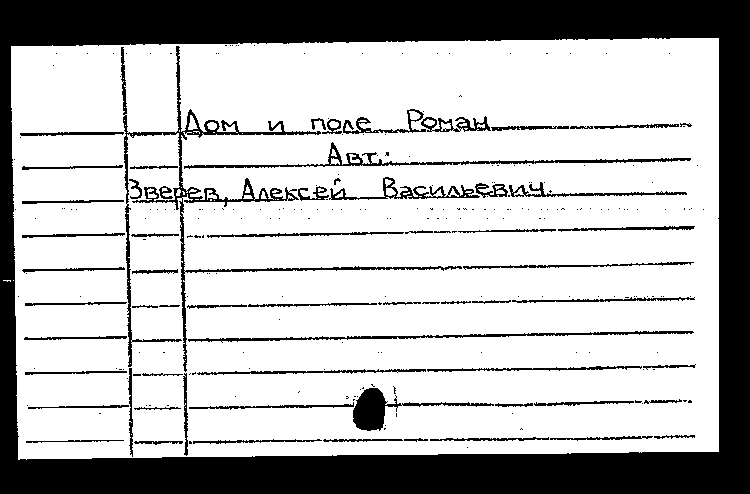 Дом и поле Роман
Авт.:
Зверев, Алексей Васильевич.